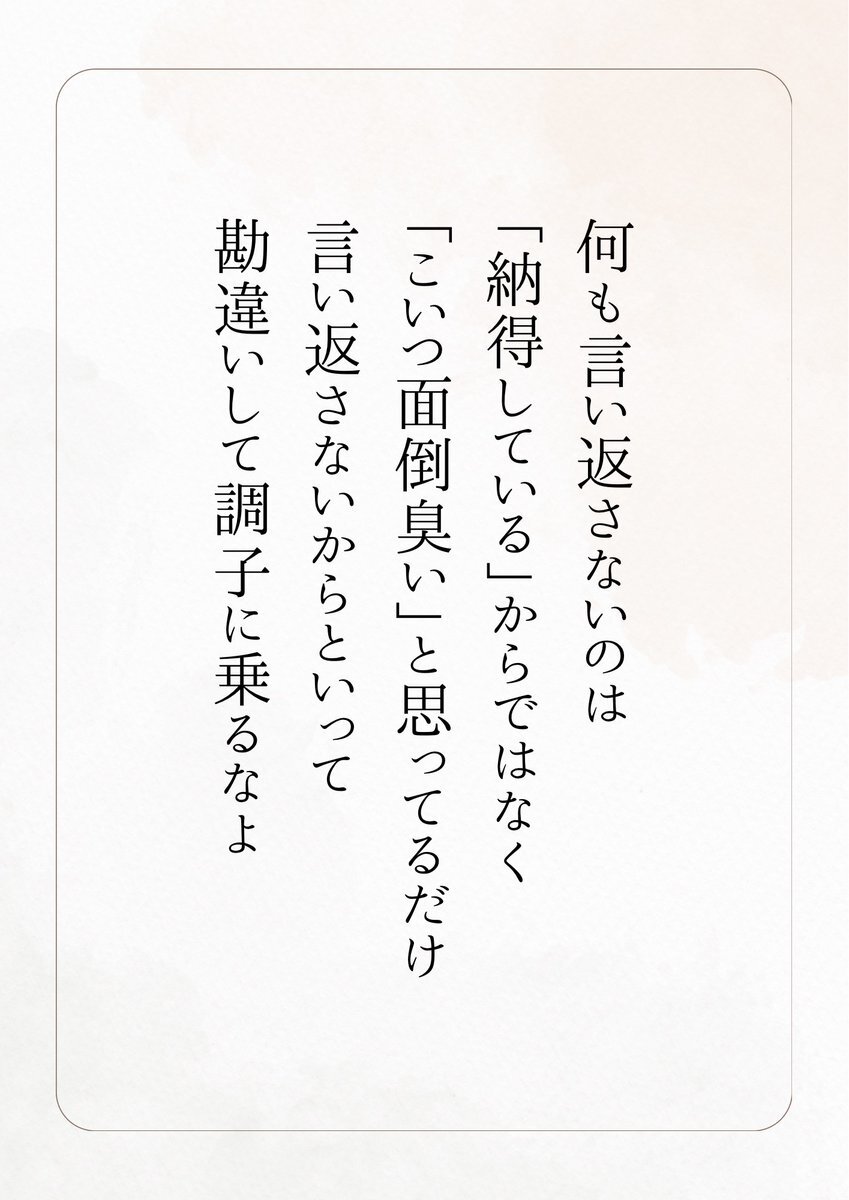 何も言い返さないのは
「納得している」からではなく
「こいつ面倒臭い」と思ってるだけ
言い返さないからといって
勘違いして調子に乗るなよ